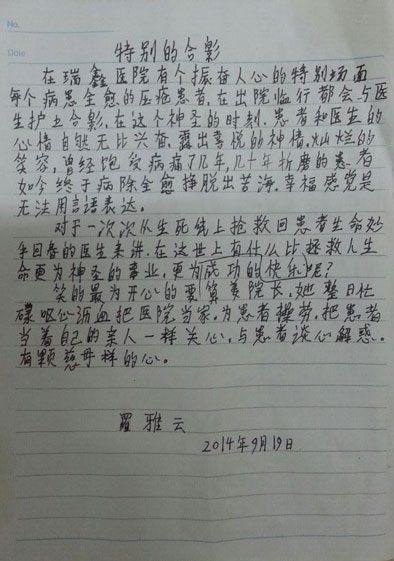 No.
Date
特别的合影
在瑞鑫医院有个振奋人心的特别场面
每个病患全愈的压疮患者,在出院临行都会与医
生护士合影,在这个神圣的时刻,患者和医生的
心情自然无比兴奋,露出喜悦的神情,灿烂的
笑容,曾经饱受病痛了几年,几十年折磨的患者
如今终于病除全愈挣脱出苦海,幸福感觉是
无法用言语表达。
对于一次次从生死线上抢救回患者生命妙
手回春的医生来讲,在这世上有什么比拯救人生
命更为神圣的事业,更为成功的快乐呢?
笑的最为开心的要算姜院长,她整日忙
碌呕心沥血把医院当家,为患者操劳,把患者
当着自己的亲人一样关心,与患者谈心解惑。
有颗慈母样的心。
罗雅云
2014年9月19日